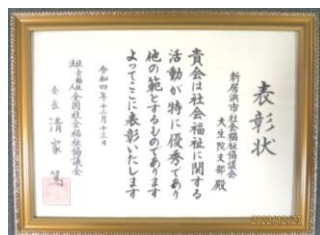 表彰状
新居浜市社会福祉協議会
大生院支部 殿
貴会は社会福祉に関する
活動が特に優秀であり
他の範とするものであります
よってここに表彰いたします
令和四年十二月十三日
社会福祉法人全国社会福祉協議会
会長 清家 篤